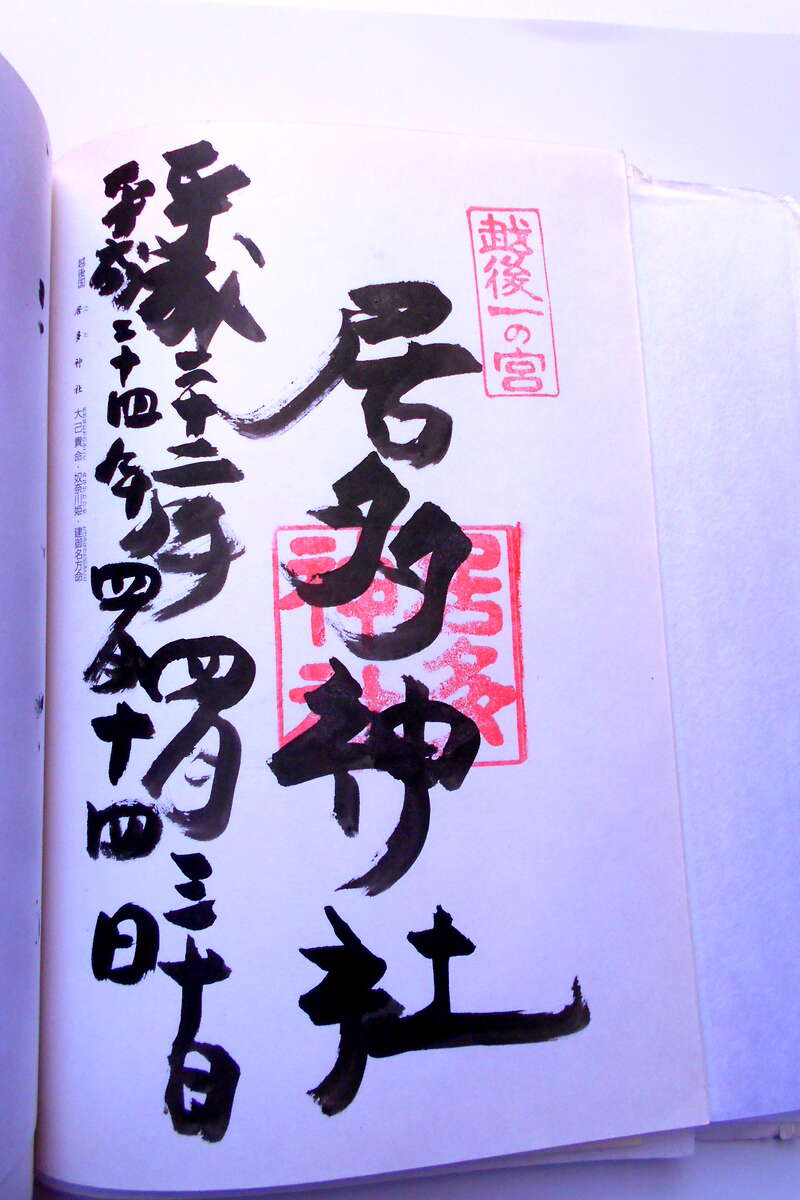 越後一の宮
居多神社
居多
神社
平成二十二年四月三十日
平成二十四年四月十四日
越後国 居多神社 大己貴命・奴奈川姫・建御名方命